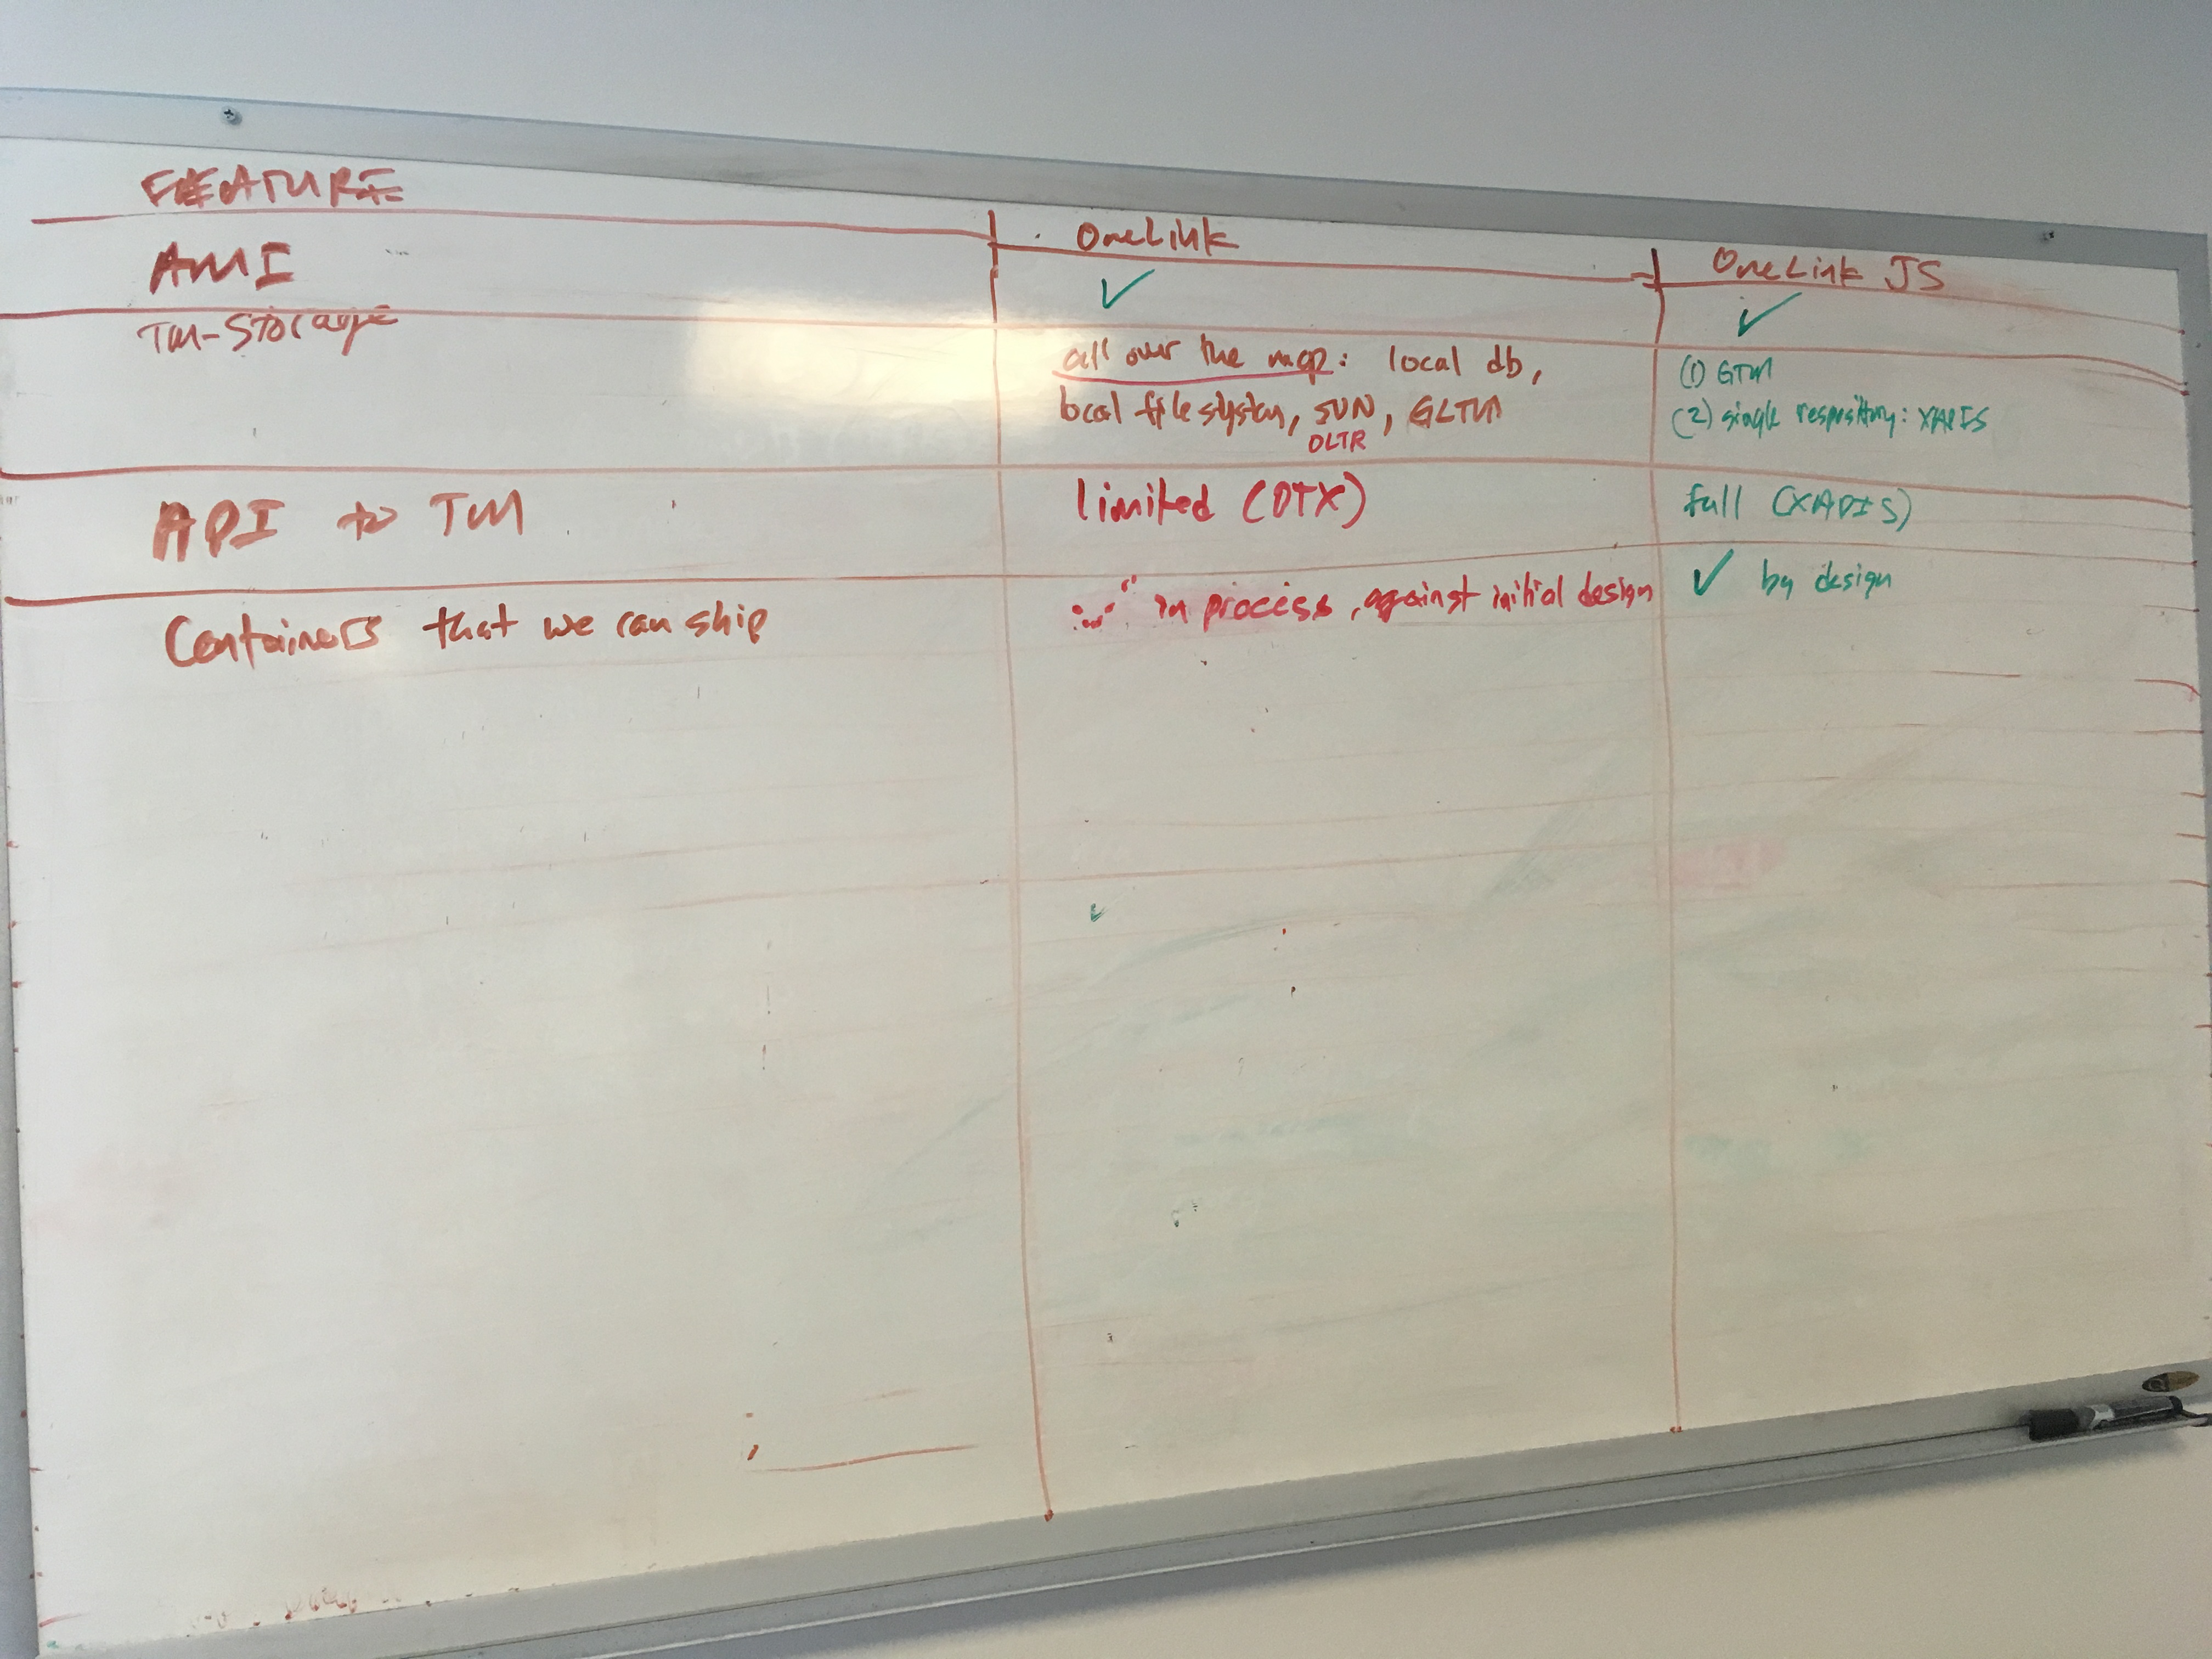 FEATURE
OneLink
OneLink JS
AMI
✓
✓
TM-Storage
all over the map: local db,
local file system, SVN, GLTM
OLTR
(1) GTM
(2) single respository: XAPIS
API to TM
limited (OTX)
full (XAPIS)
Containers that we can ship
in process, against initial design
✓ by design